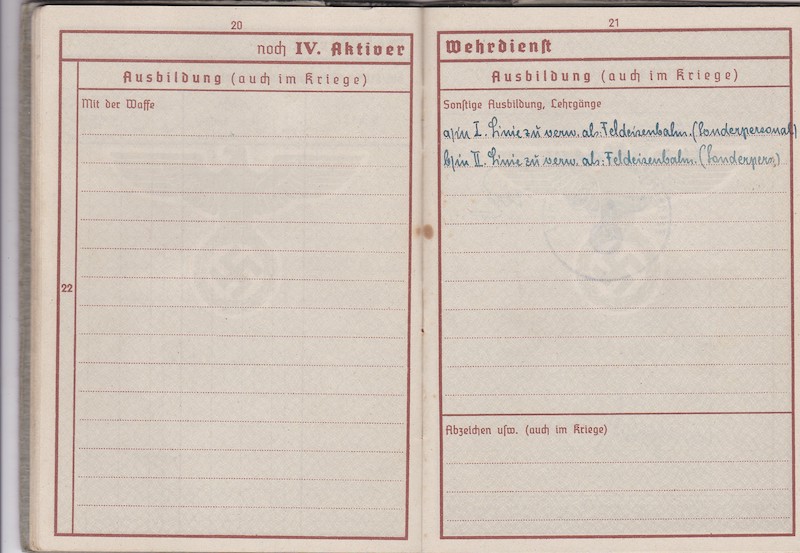 20
noch IV. Aktiver
Ausbildung (auch im Kriege)
Mit der Waffe
22
21
Wehrdienst
Ausbildung (auch im Kriege)
Sonstige Ausbildung, Lehrgänge
a/in I. Linie zu verw. als: Feldeisenbahn. (Sonderpersonal)
b/in II. Linie zu verw. als: Feldeisenbahn. (Sonderpers.)
Abzeichen usw. (auch im Kriege)